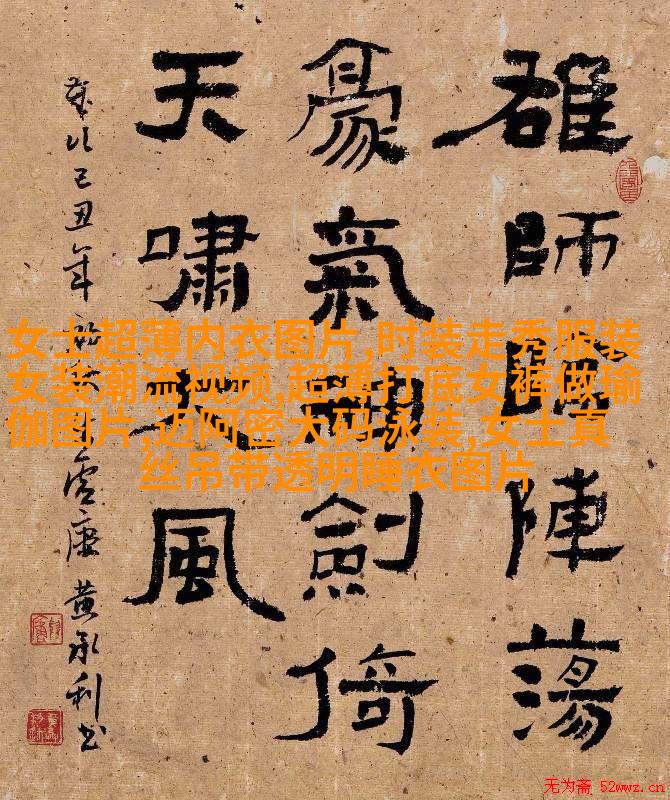 雄師陣蕩
豪氣劍倚
天嘯風
歲次己丑年
黄承利书
女士超薄内衣图片,时装走秀服装
女装潮流视频,超薄打底女裤做瑜
伽图片,迈阿密大码泳装,女士真
丝吊带透明睡衣图片
无为斋 52wwz.cn